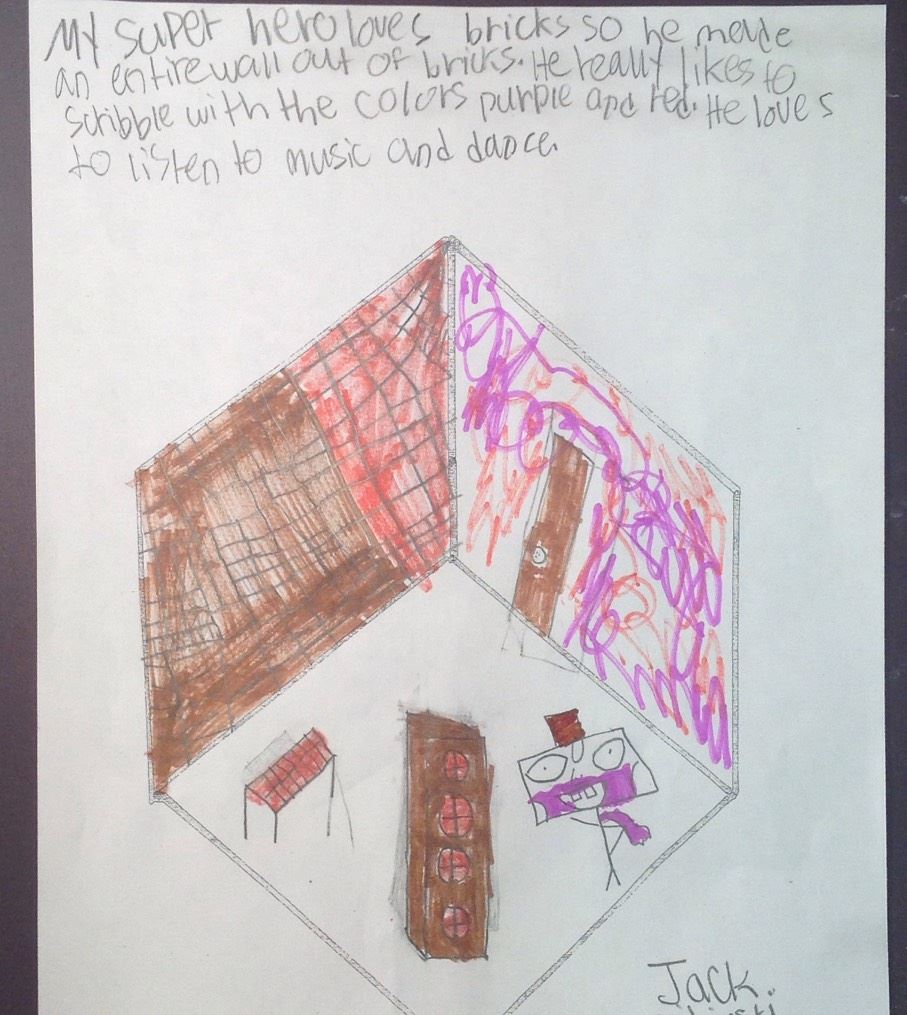 My super hero loves bricks so he made
an entire wall out of bricks. He really likes to
scribble with the colors purple and red. He loves
to listen to music and dance.
Jack.